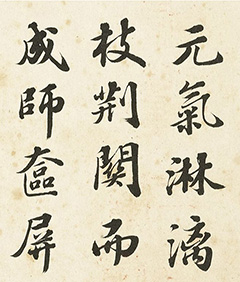 元氣淋漓
枝荆関而
成師奩屏